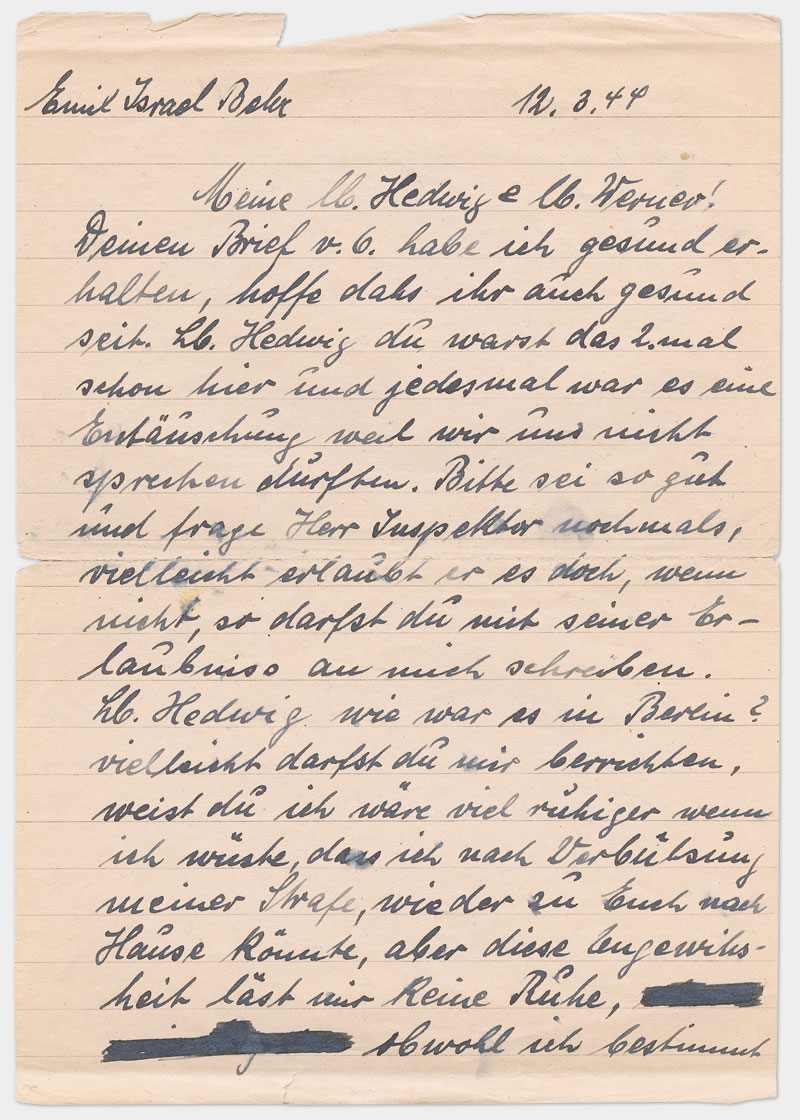 Emil Israel Behr 12. 3. 44
Meine lb. Hedwig e lb. Werner!
Deinen Brief v. 6. habe ich gesund er-
halten, hoffe dahs ihr auch gesund
seit. Lb. Hedwig du warst das 2. mal
schon hier und jedesmal war es eine
Entäuschung weil wir uns nicht
sprechen durften. Bitte sei so gut
und frage Herr Inspektor nochmals,
vielleicht erlaubt er es doch, wenn
nicht, so darfst du mit seiner Er-
laubniss an mich schreiben.
Lb. Hedwig wie war es in Berlin?
vielleicht darfst du mir berrichten,
weist du ich wäre viel ruhiger wenn
ich wüste, dass ich nach Verbühsung
meiner Strafe, wieder zu Euch nach
Hause könnte, aber diese Ungewihs-
heit läst mir keine Ruhe,
obwohl ich bestimmt